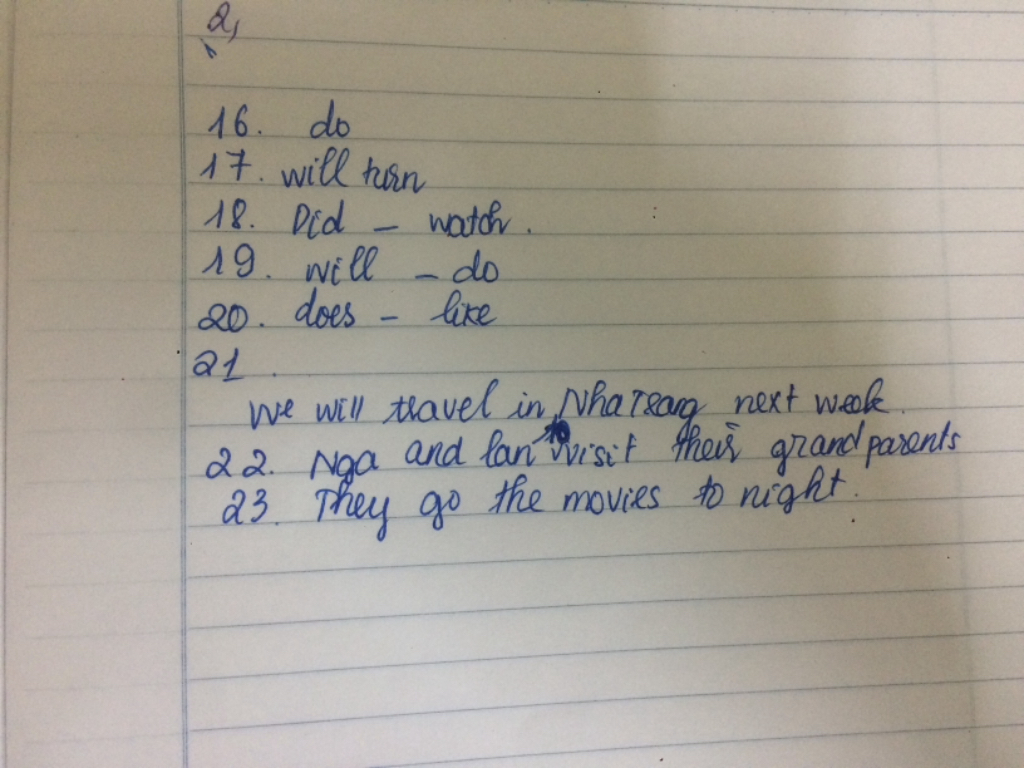 2,
16. do
17. will turn
18. Did - watch.
19. will - do
20. does - like
21.
We will travel in Nha Trang next week.
22. Nga and lan visit their grand parents
23. They go the movies to night.